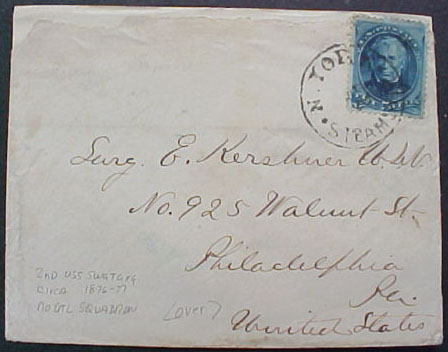 N. YORK
STEAMS
Surg. E. Kershner U.S.N.
No. 925 Walnut St.
Philadelphia
Pa.
United States
2ND USS SWATARA
CIRCA 1876-77
NO ATL SQUADRON
(over)